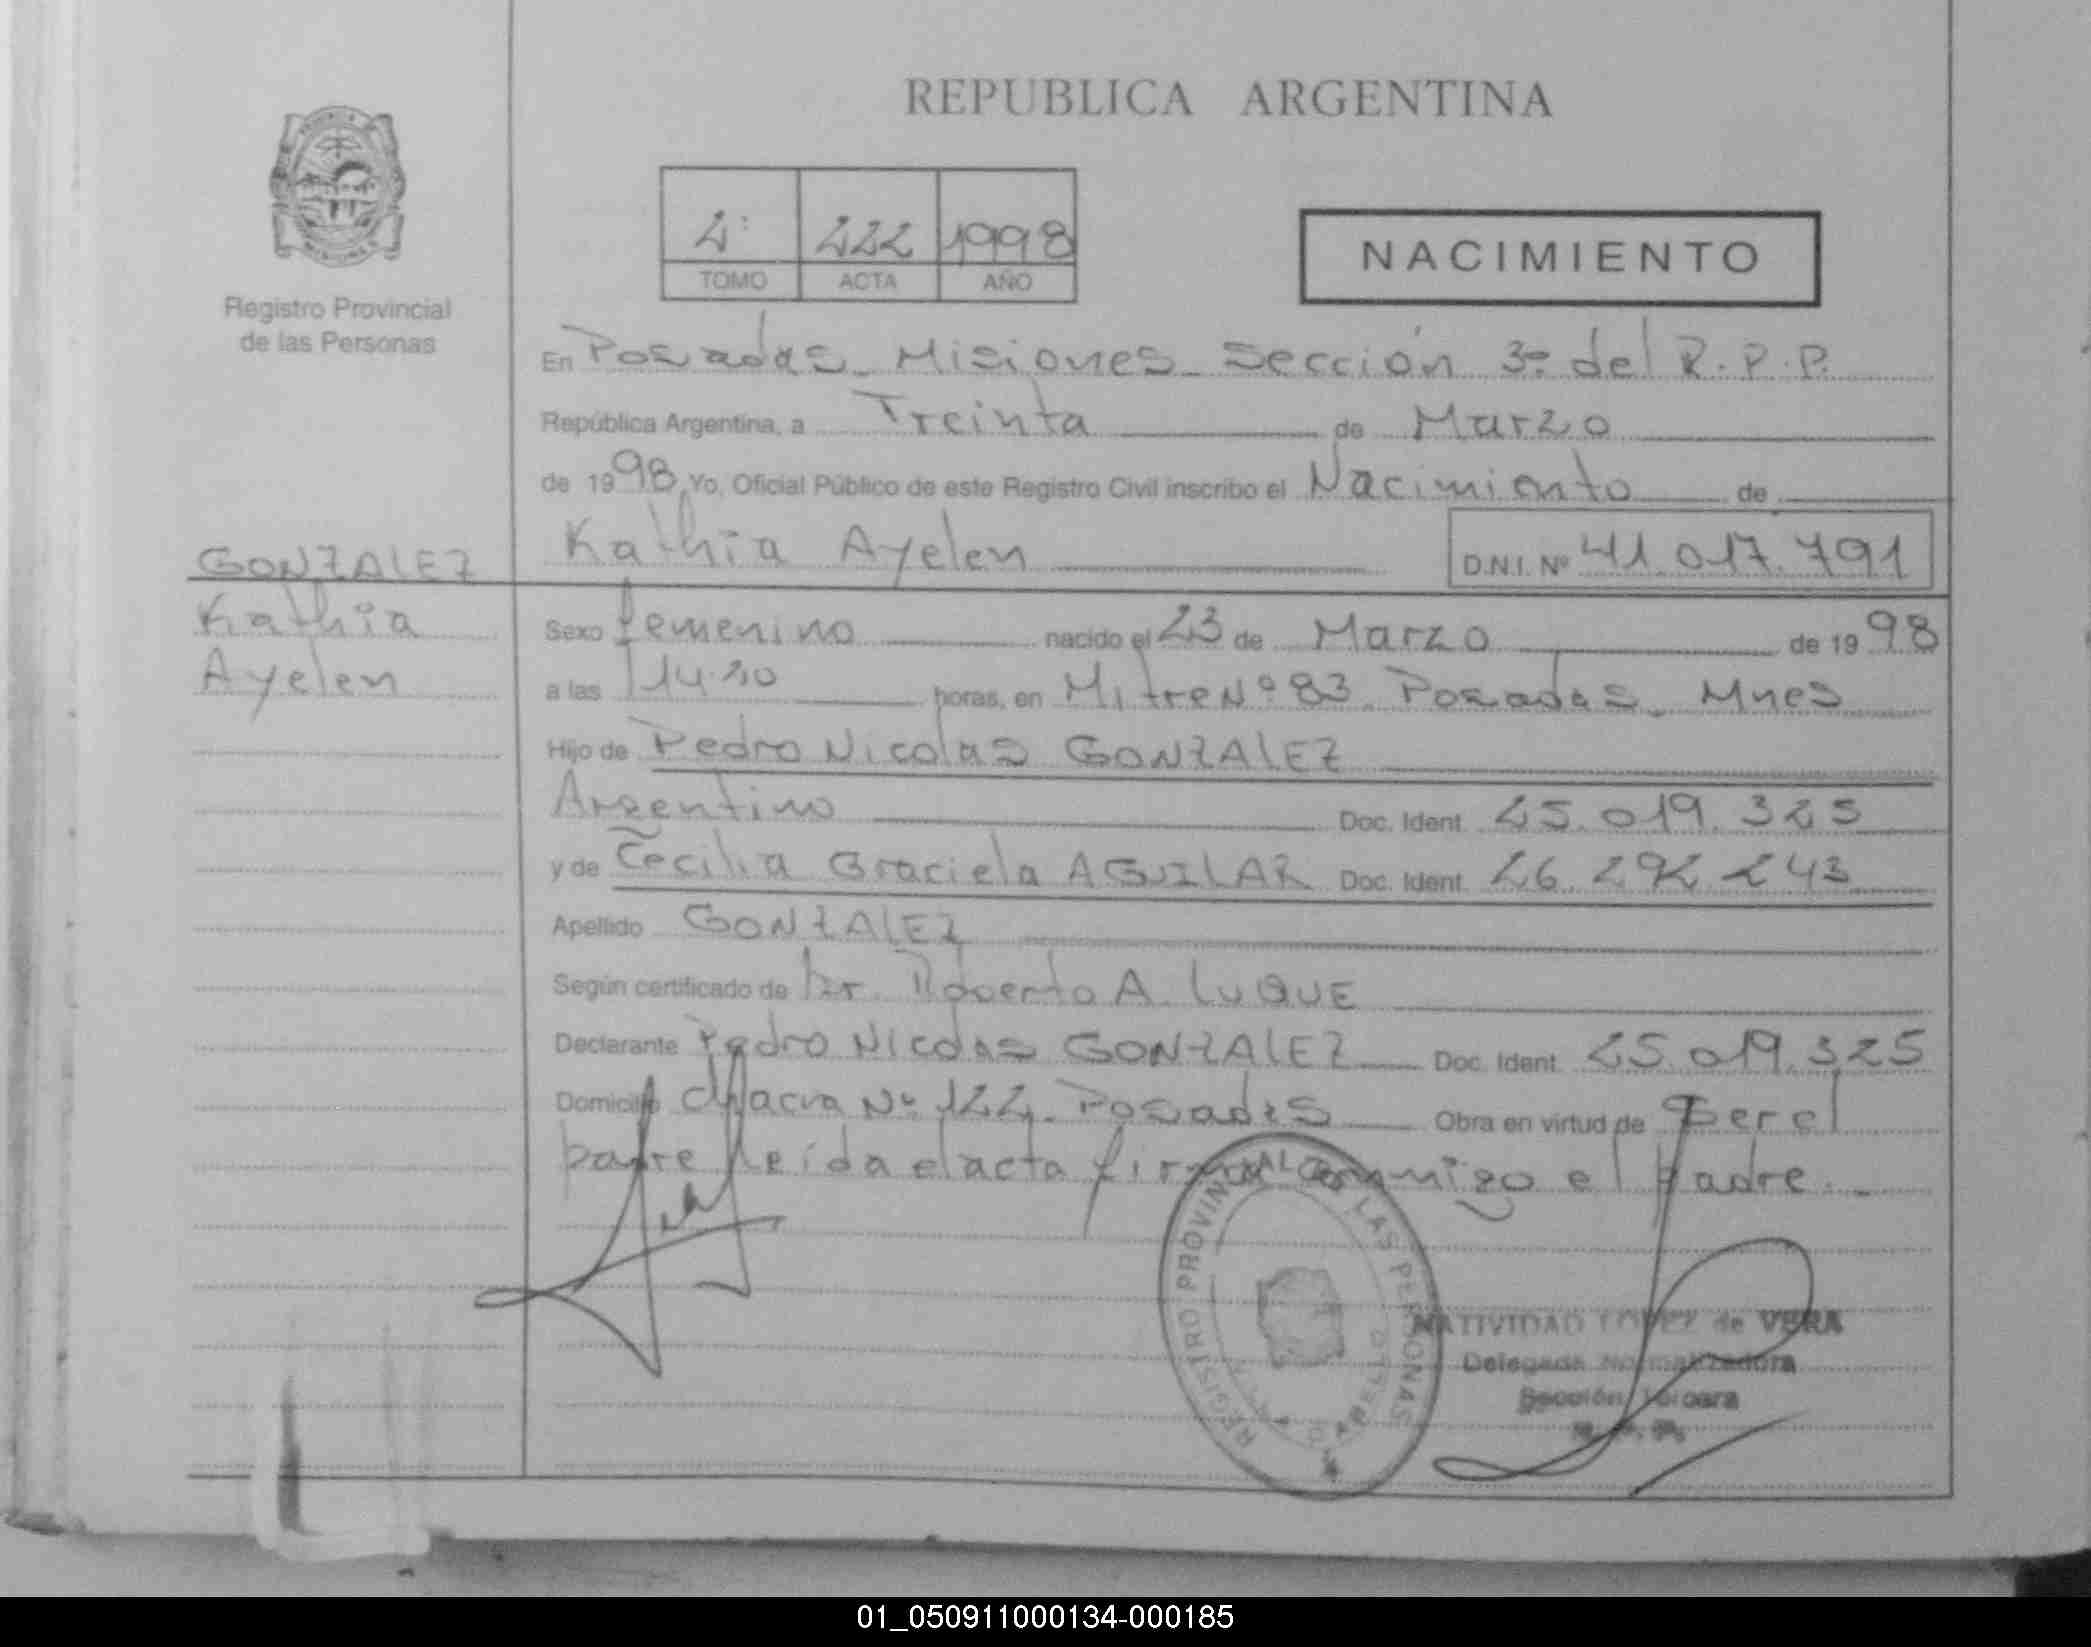 REPUBLICA ARGENTINA
2º 222 1998
TOMO ACTA AÑO
NACIMIENTO
Registro Provincial
de las Personas
En Posadas - Misiones - Sección 3º del R.P.P.
República Argentina, a Treinta de Marzo
de 1998, Yo, Oficial Público de este Registro Civil inscribo el Nacimiento de
Kathia Ayelen D.N.I. Nº 41.017.791
GONZALEZ
Kathia
Ayelen
Sexo femenino nacido el 23 de Marzo de 1998
a las horas, en Mitre Nº 83. Posadas - Mnes
Hijo de Pedro Nicolas GONZALEZ
Argentino Doc. Ident. 25.019.325
y de Cecilia Graciela AGUILAR Doc. Ident. 26.292.243
Apellido GONZALEZ
Según certificado de Dr. Roberto A. LUQUE
Declarante Pedro Nicolas GONZALEZ Doc. Ident. 25.019.325
Domicilio Chacra Nº 122 - Posadas Obra en virtud de Ser el
padre leída el acta firma conmigo el padre. -
REGISTRO PROVINCIAL DE LAS PERSONAS
NATIVIDAD LOPEZ de VERA
Delegada Normalizadora
Sección Tercera
R. P. P.
01_050911000134-000185